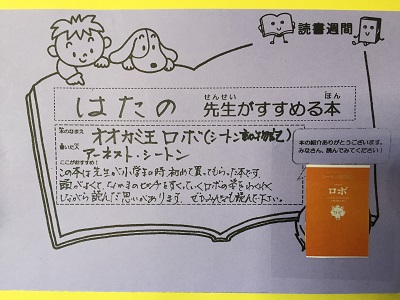 読書週間
はたの 先生がすすめる本
せんせい
ほん
本のなまえ オオカミ王 ロボ(シートン動物記)
書いた人 アーネスト・シートン
ここがおすすめ!
この本は先生が小学生の時、初めて買ってもらった本です。
頭がよくて
ロボの姿をわくわく
しながら読んだ思い出があります。ぜひみんなも読んで下さい。
本の紹介ありがとうございます。
みなさん、読んでみてください!
ロボ